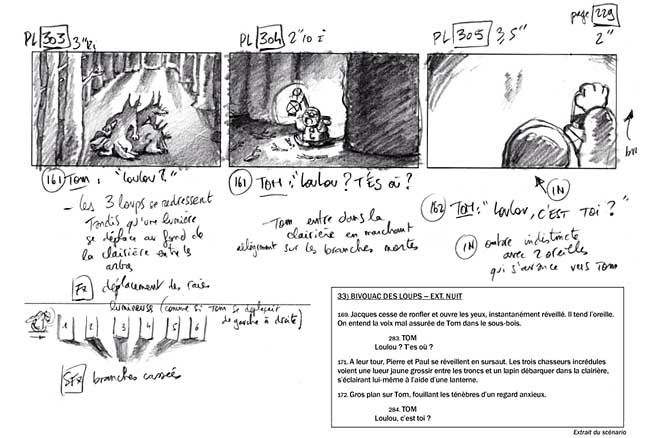 page 229
PL 303 3"
PL 304 2"10 i
PL 305 3,5" 2"
161 TOM: "Loulou?"
- Les 3 loups se redressent
Tandis qu'une lumière
se déplace au fond de
la clairière entre les
arbres
FX déplacement des raies
lumineuses (comme si Tom se déplaçait
de gauche à droite)
1 2 3 4 5 6
SFX branches cassées
161 TOM: "Loulou? T'ES où?
- Tom entre dans la
clairière en marchant
sur les branches mortes
IN
162 TOM: "Loulou, C'EST TOI?"
IN ombre indistincte
avec 2 oreilles
qui s'avance vers Tom
33) BIVOUAC DES LOUPS – EXT. NUIT
169. Jacques cesse de ronfler et ouvre les yeux, instantanément réveillé. Il tend l'oreille.
On entend la voix mal assurée de Tom dans le sous-bois.
283. TOM
Loulou ? T'es où ?
171. A leur tour, Pierre et Paul se réveillent en sursaut. Les trois chasseurs incrédules
voient une lueur jaune grossir entre les troncs et un lapin débarquer dans la clairière,
s'éclairant lui-même à l'aide d'une lanterne.
172. Gros plan sur Tom, fouillant les ténèbres d'un regard anxieux.
284. TOM
Loulou, c'est toi ?
Extrait du scénario